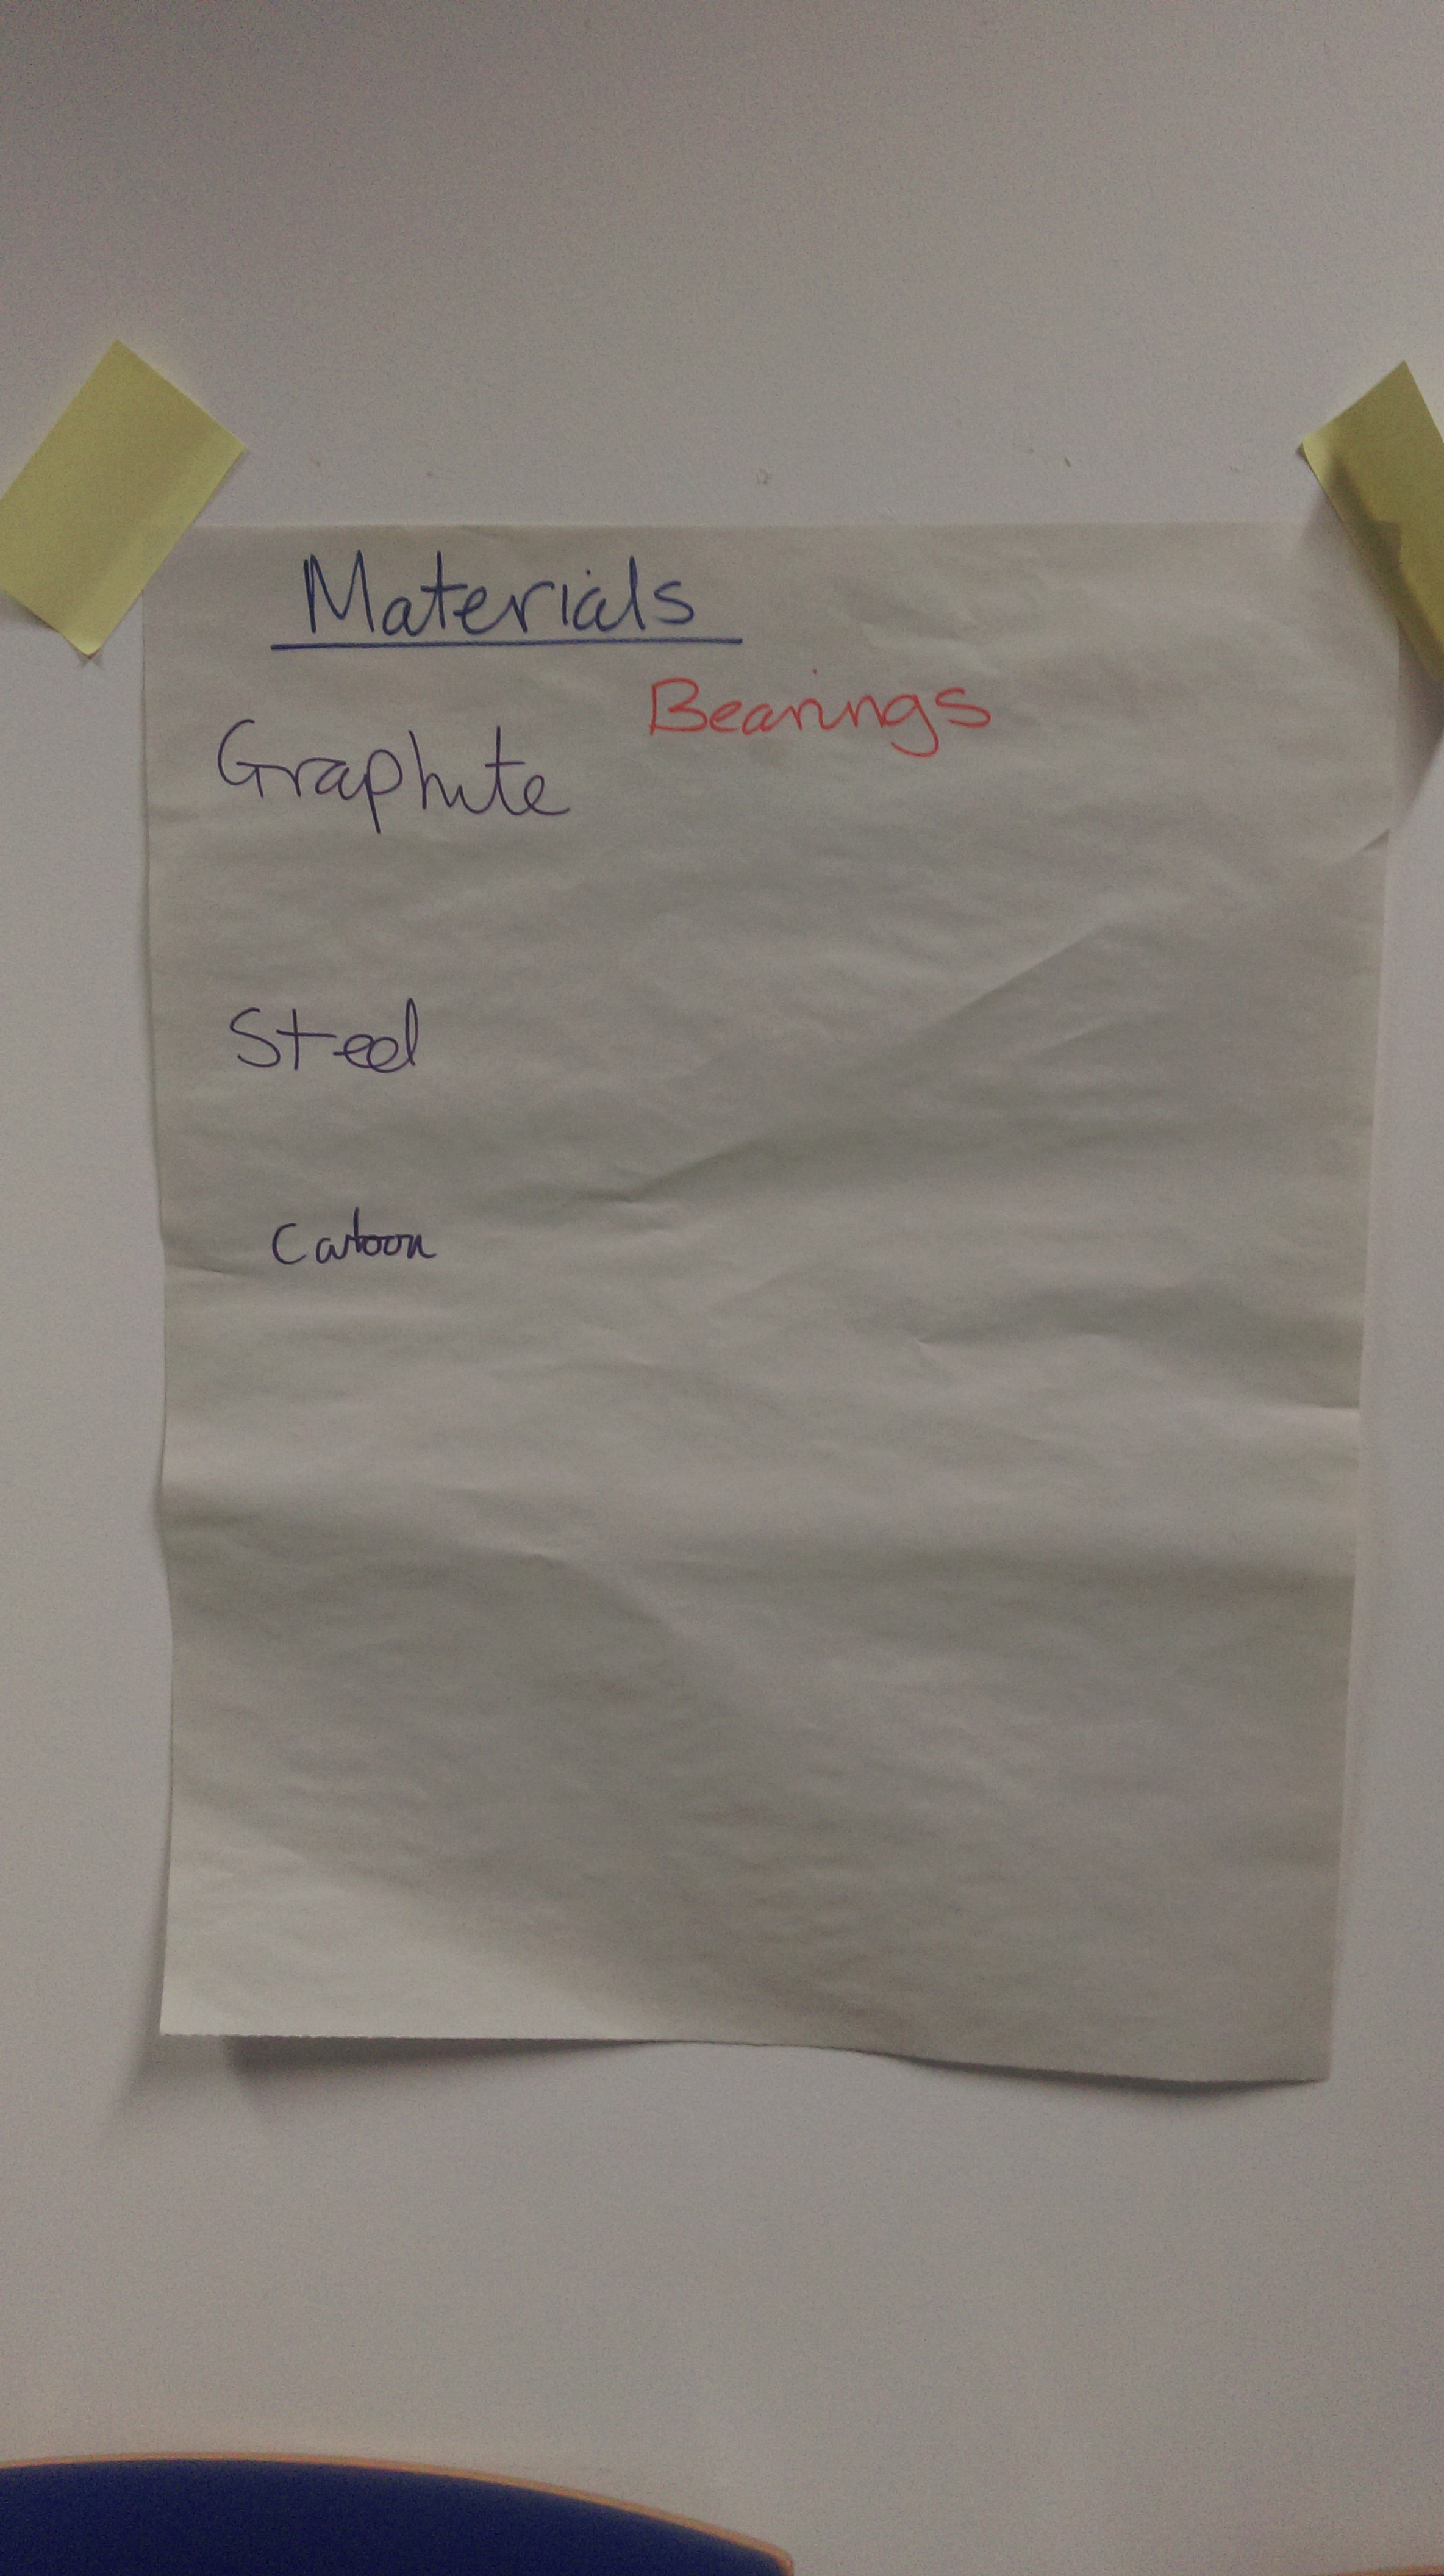 Materials
Bearings
Graphite
Steel
Carbon